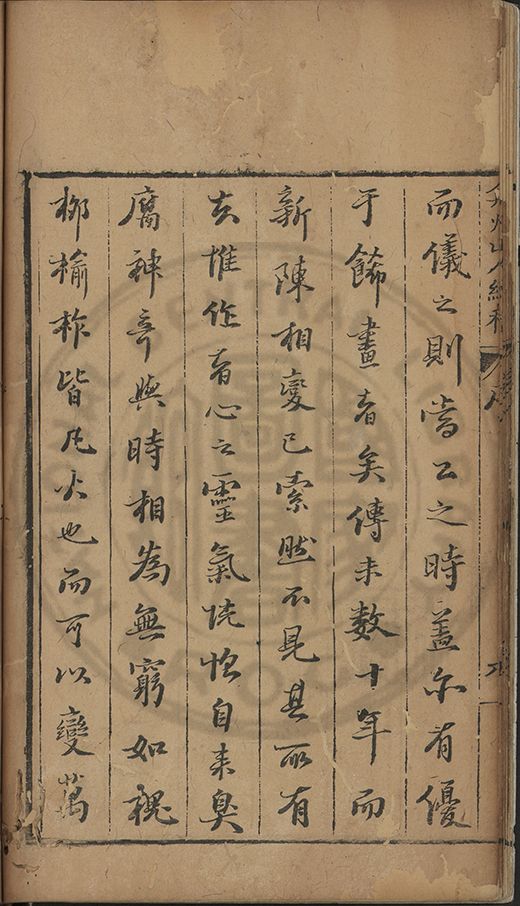 弇州山人續稿 序
而儀之則當公之時蓋亦有優
于餙畫者矣傳未數十年而
新陳相變已索然不見其所有
夫惟作者心之靈氣恍惚自来臭
腐神奇與時相為無窮如槐
柳榆柞皆凡火也而可以變萬